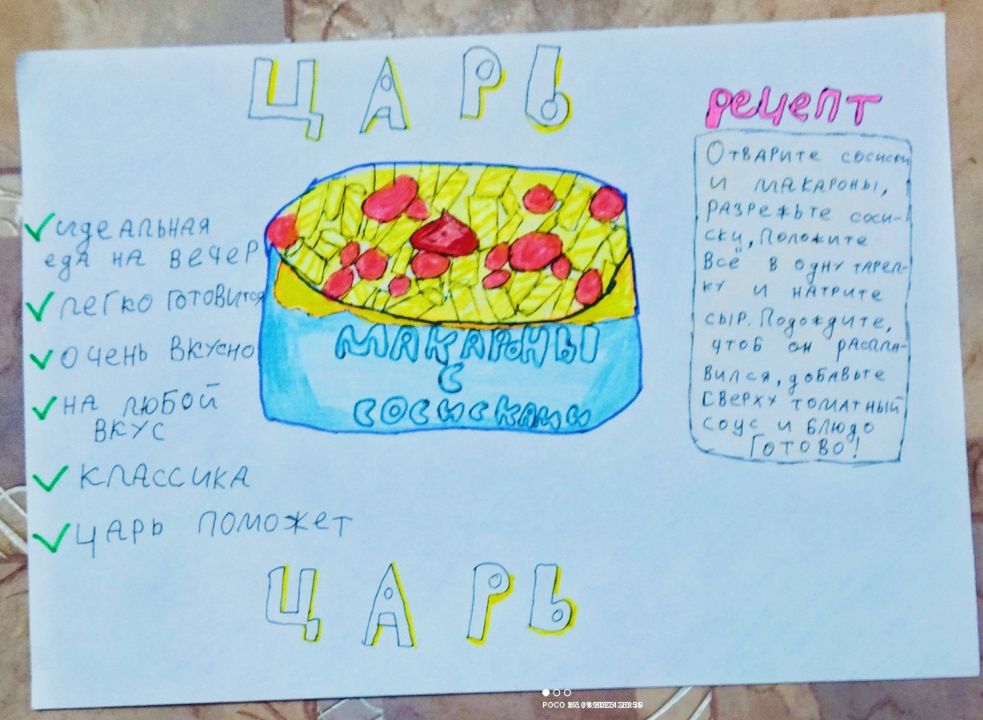 ЦАРЬ
идеальная
еда на вечер
легко готовится
очень вкусно
на любой
вкус
классика
царь поможет
МАКАРОНЫ
С
СОСИСКАМИ
рецепт
Отварите сосиски
и макароны,
разрежьте соси-
ски, положите
всё в одну тарел-
ку и натрите
сыр. Подождите,
чтоб он распла-
вился, добавьте
сверху томатный
соус и блюдо
готово!
ЦАРЬ